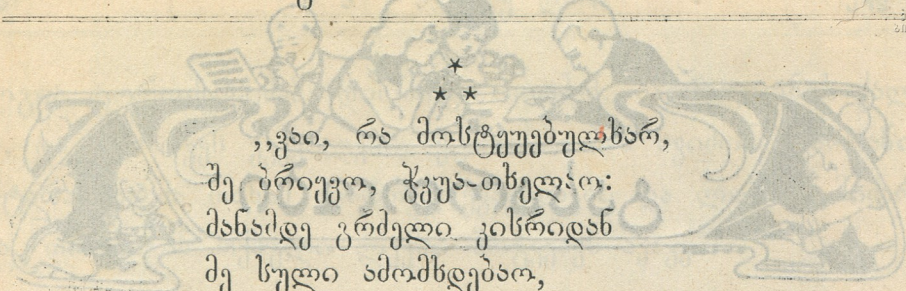 ,,ვაი, რა მოსტყუებულხარ,
შე ბრიყვო, ჭკუა-თხელაო:
მანამდე გრძელი კისრიდან
მე სული ამომხდებაო,